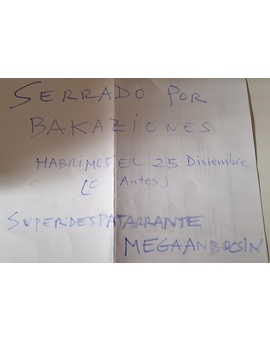 SERRADO POR
BAKAZIONES
HABRIMOS EL 25 Disiembre
(o Antes)
SUPERDESPATARRANTE
MEGAANBOSIN